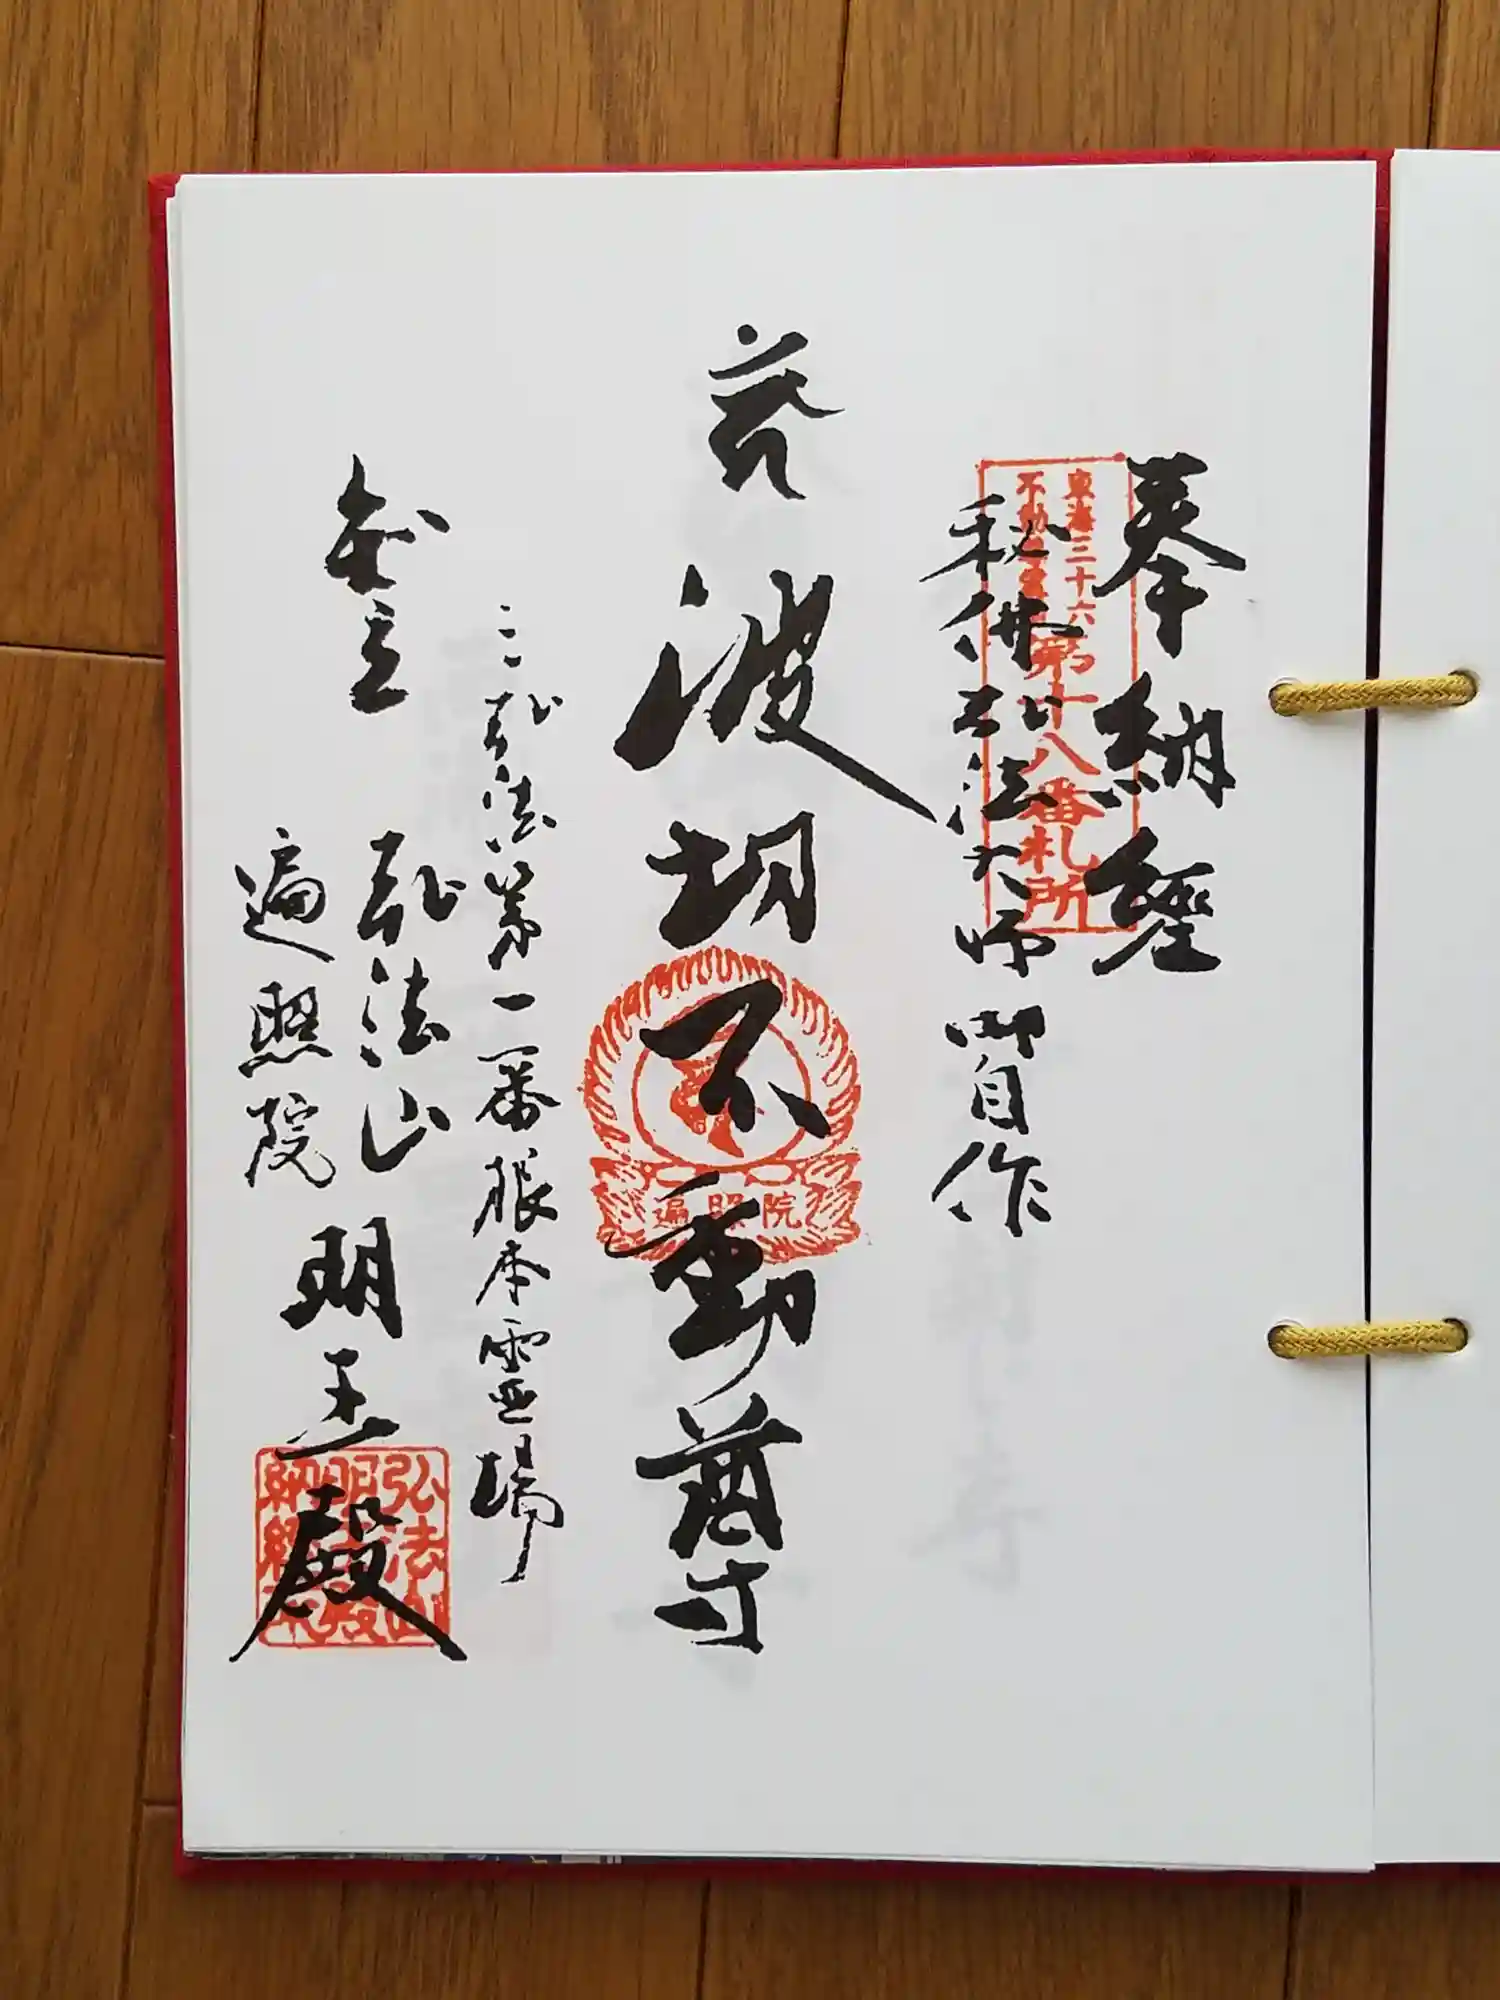 奉納經
東海三十六
不動尊霊場
第十八番札所
秘佛弘法大師御自作
波切不動尊
遍照院
三弘法第一番根本霊場
弘法山
遍照院
明王殿
弘法山
明王殿
納経